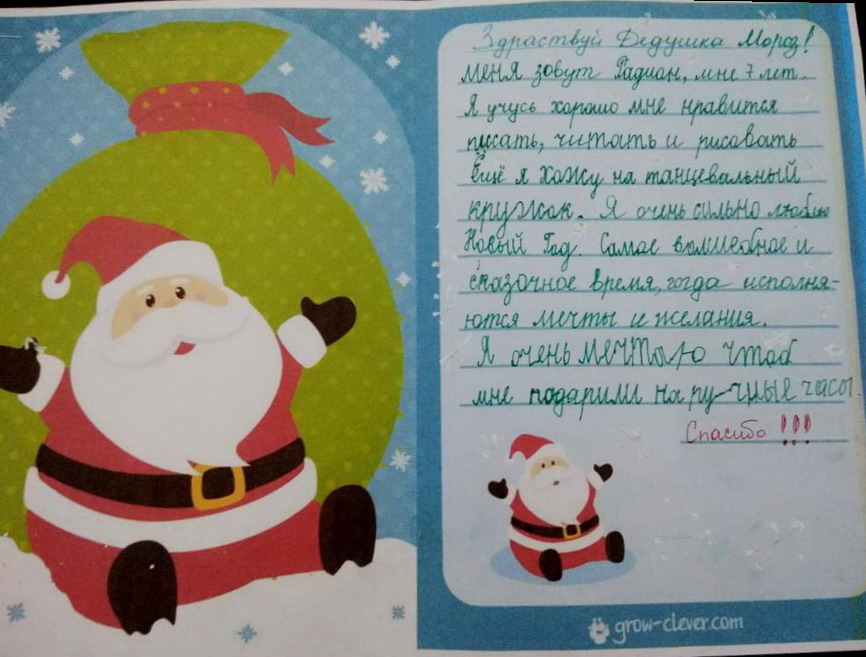 Здраствуй Дедушка Мороз!
меня зовут Радион, мне 7 лет.
Я учусь хорошо мне нравится
писать, читать и рисовать
Ещё я хожу на танцевальный
кружок. Я очень сильно люблю
Новый Год. Самое волшебное и
сказочное время, когда исполня-
ются мечты и желания.
Я очень мечтаю чтоб
мне подарили на ру-чные часы.
Спасибо !!!
grow-clever.com